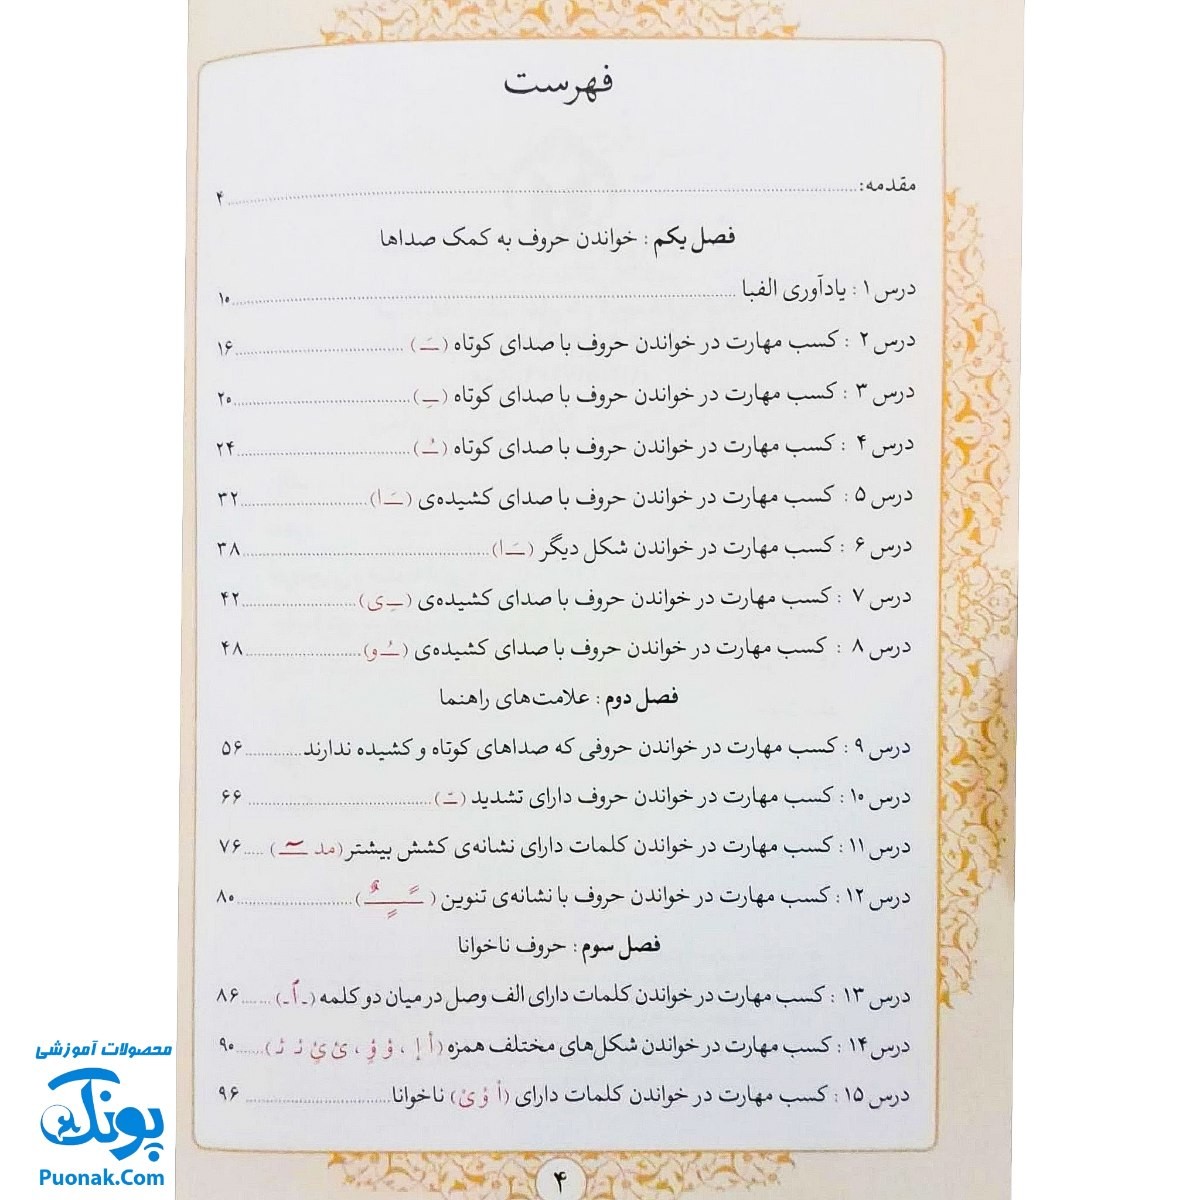 فهرست
مقدمه: ۴
فصل یکم : خواندن حروف به کمک صداها
درس ۱ : یادآوری الفبا ۱۰
درس ۲ : کسب مهارت در خواندن حروف با صدای کوتاه (ـَ) ۱۶
درس ۳ : کسب مهارت در خواندن حروف با صدای کوتاه (ـِ) ۲۰
درس ۴ : کسب مهارت در خواندن حروف با صدای کوتاه (ـُ) ۲۴
درس ۵ : کسب مهارت در خواندن حروف با صدای کشیده‌ی (ـَ ا) ۳۲
درس ۶ : کسب مهارت در خواندن شکل دیگر (ـَ ا) ۳۸
درس ۷ : کسب مهارت در خواندن حروف با صدای کشیده‌ی (ـِ ی) ۴۲
درس ۸ : کسب مهارت در خواندن حروف با صدای کشیده‌ی (ـُ و) ۴۸
فصل دوم : علامت‌های راهنما
درس ۹ : کسب مهارت در خواندن حروفی که صداهای کوتاه و کشیده ندارند ۵۶
درس ۱۰ : کسب مهارت در خواندن حروف دارای تشدید (ـّ) ۶۶
درس ۱۱ : کسب مهارت در خواندن کلمات دارای نشانه‌ی کشش بیشتر (مد ـٓ) ۷۶
درس ۱۲ : کسب مهارت در خواندن حروف با نشانه‌ی تنوین (ـًـٍـٌ) ۸۰
فصل سوم : حروف ناخوانا
درس ۱۳ : کسب مهارت در خواندن کلمات دارای الف وصل در میان دو کلمه (ـ ٱ ـ) ۸۶
درس ۱۴ : کسب مهارت در خواندن شکل‌های مختلف همزه (أ إ ، ؤ ؤ ، ئ ئ ئـ ئـ) ۹۰
درس ۱۵ : کسب مهارت در خواندن کلمات دارای (ا و ی) ناخوانا ۹۶
۴
محصولات آموزشی
پونک
Puonak.Com